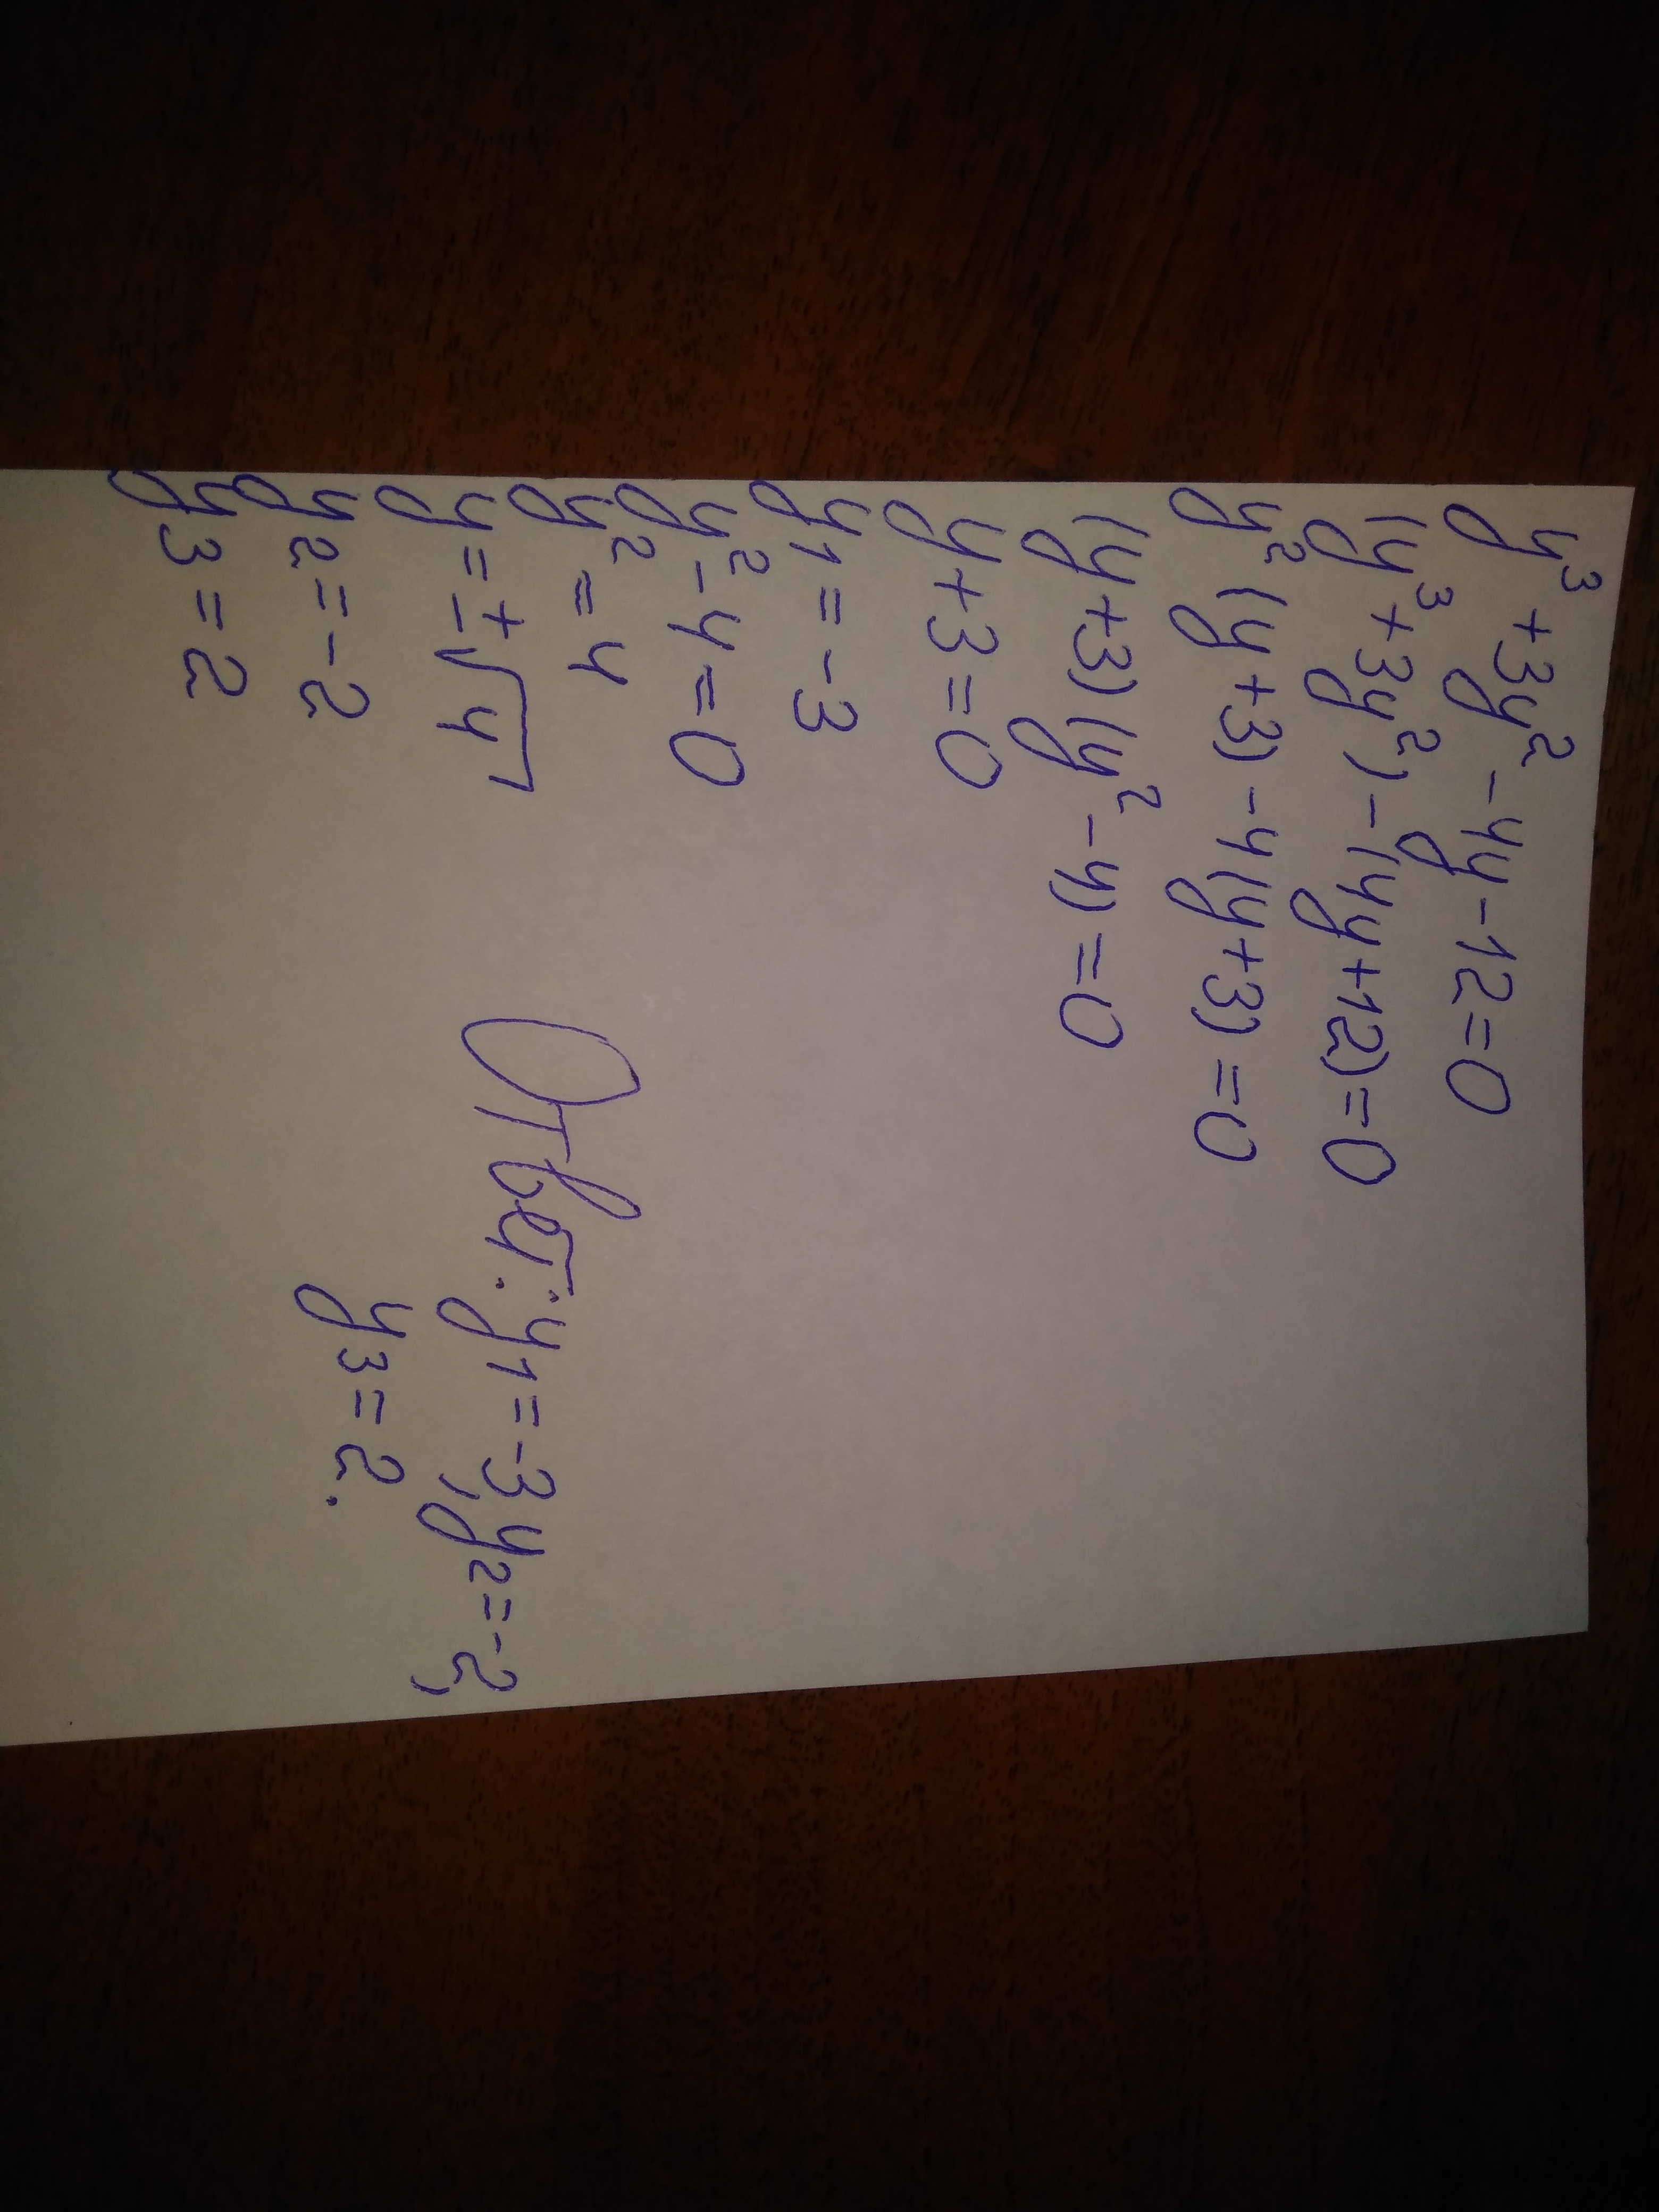 y³+3y²-4y-12=0
(y³+3y²)-(4y+12)=0
y²(y+3)-4(y+3)=0
(y+3)(y²-4)=0
y+3=0
y₁=-3
y²-4=0
y²=4
y=±√4
y₂=-2
y₃=2
Ответ: y₁=-3, y₂=-2,
y₃=2.